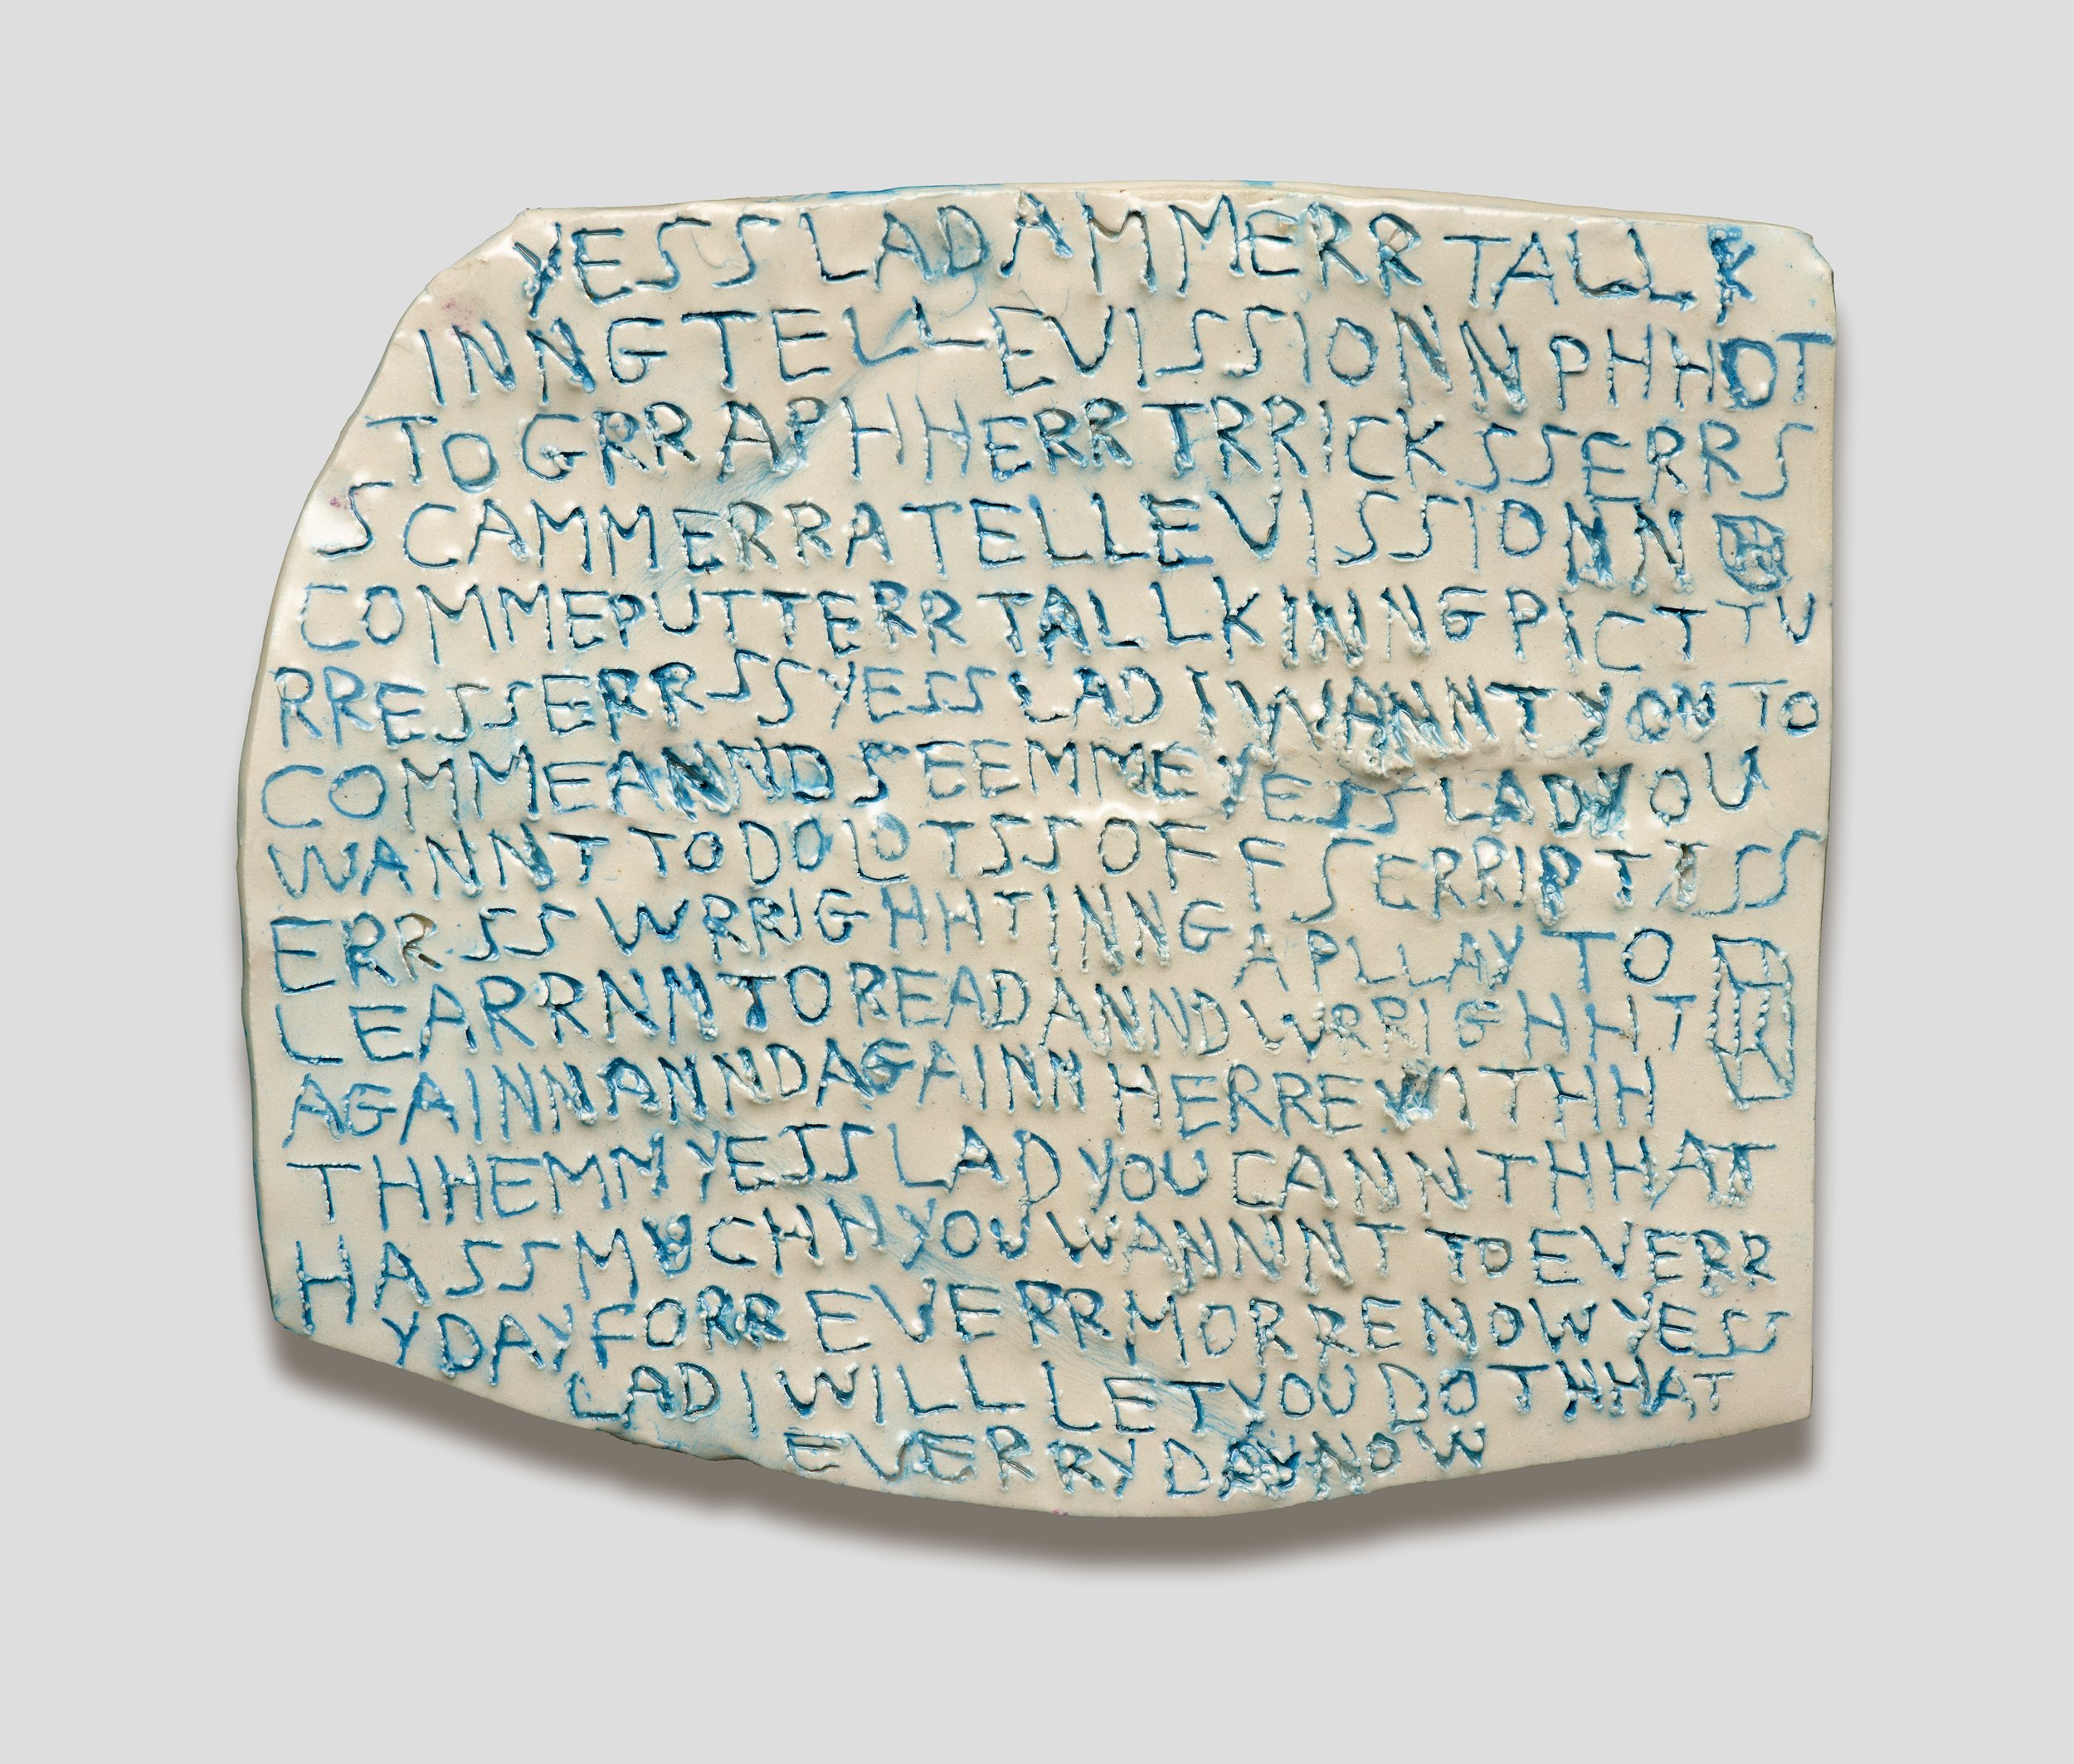 YESS LADAMMERR TALLK
INNG TELLEVISSIONN PHHOT
TOGRRAPHHERR TRRICKSSERRS
S CAMMERRA TELLEVISSIONN
COMMEPUTTERR TALLKINNG PICTTU
RRESSERRSS YESS LAD I WANNT YOU TO
COMME ANND SEE MME YESS LAD YOU
WANNT TO DO LOTSS OFF SERRIPTTSS
ERRSS WRRIGHHTINNG A PLLAY TO
LEARRNN TO READ ANND WRRIGHHT
AGAINN ANND AGAINN HERRE WITHH
THHEMM YESS LAD YOU CANN THHAT
HASS MUCHH YOU WANNNT TO EVERR
YDAY FORR EVERRMORRE NOW YESS
LAD I WILL LET YOU DO THHAT
EVERRY DAY NOW